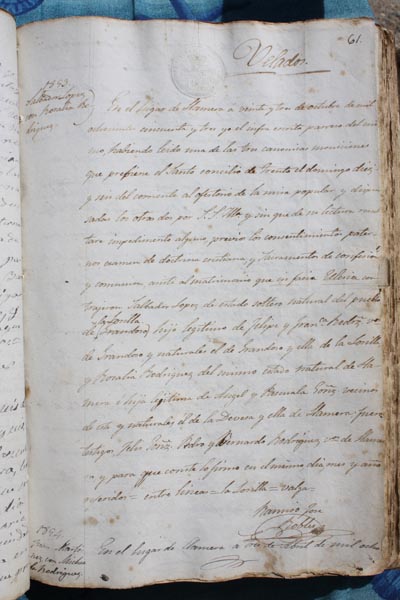 61.
Velados.
1853.
Salbador Lopez
con Rosalia Ro
driguez
En el lugar de Llamera a veinte y tres de octubre de mil
ochocientos cincuenta y tres yo el infra escrito parroco del mis
mo, habiendo leido una de las tres canonicas moniciones
que prefiere el Santo concilio de Trento el domingo diez
y seis del corriente al ofertorio de la misa popular, y dispen
sadas las otras dos por S. S. Ilma y sin que de su lectura resul
tare impedimento alguno, previo los consentimientos pater
nos examen de doctrina cristiana y Sacramentos de confesion
y comunion, asisti al matrimonio que in facie Ecclesiae con
trajeron Salbador Lopez de estado soltero natural del pueblo
la Sorilla
de (Grandas) hijo legitimo de Felipe y Franca Rodrez vs
de Grandas y naturales el de Grandas y ella de la Sorilla
y Rosalia Rodriguez del mismo estado natural de Lla
mera e hija legitima de Angel y Manuela vecinos
de esta y naturales el de la Devesa y ella de Llamera; fueron
testigos Felix Pedro y Bernardo Rodriguez vs de Llame
ra y para que conste lo firmo en el mismo dia mes y año
referidos = entre lineas = la Sorilla = valga =
Ramiro Jose
1854
con
Rodriguez
En el lugar de Llamera a de Abril de mil ocho